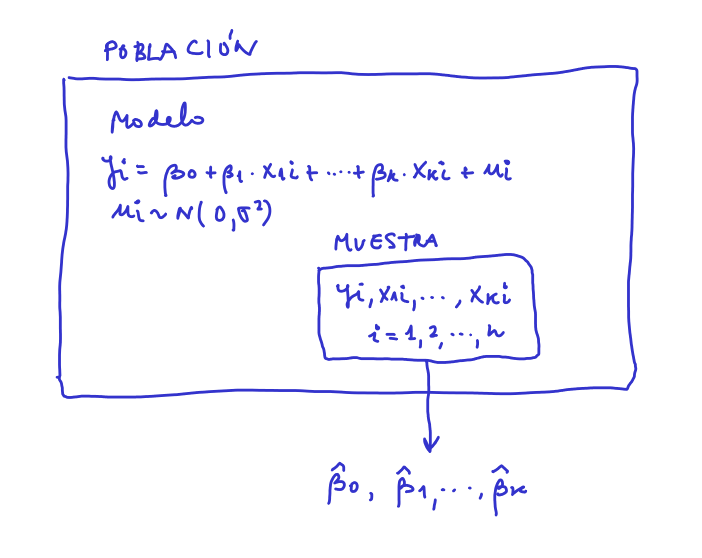 POBLACIÓN
Modelo
yi = β0 + β1 · X1i + ··· + βk · Xki + ui
ui ~ N(0, σ²)
MUESTRA
yi, X1i, ..., Xki
i = 1, 2, ..., n
β̂0, β̂1, ..., β̂k